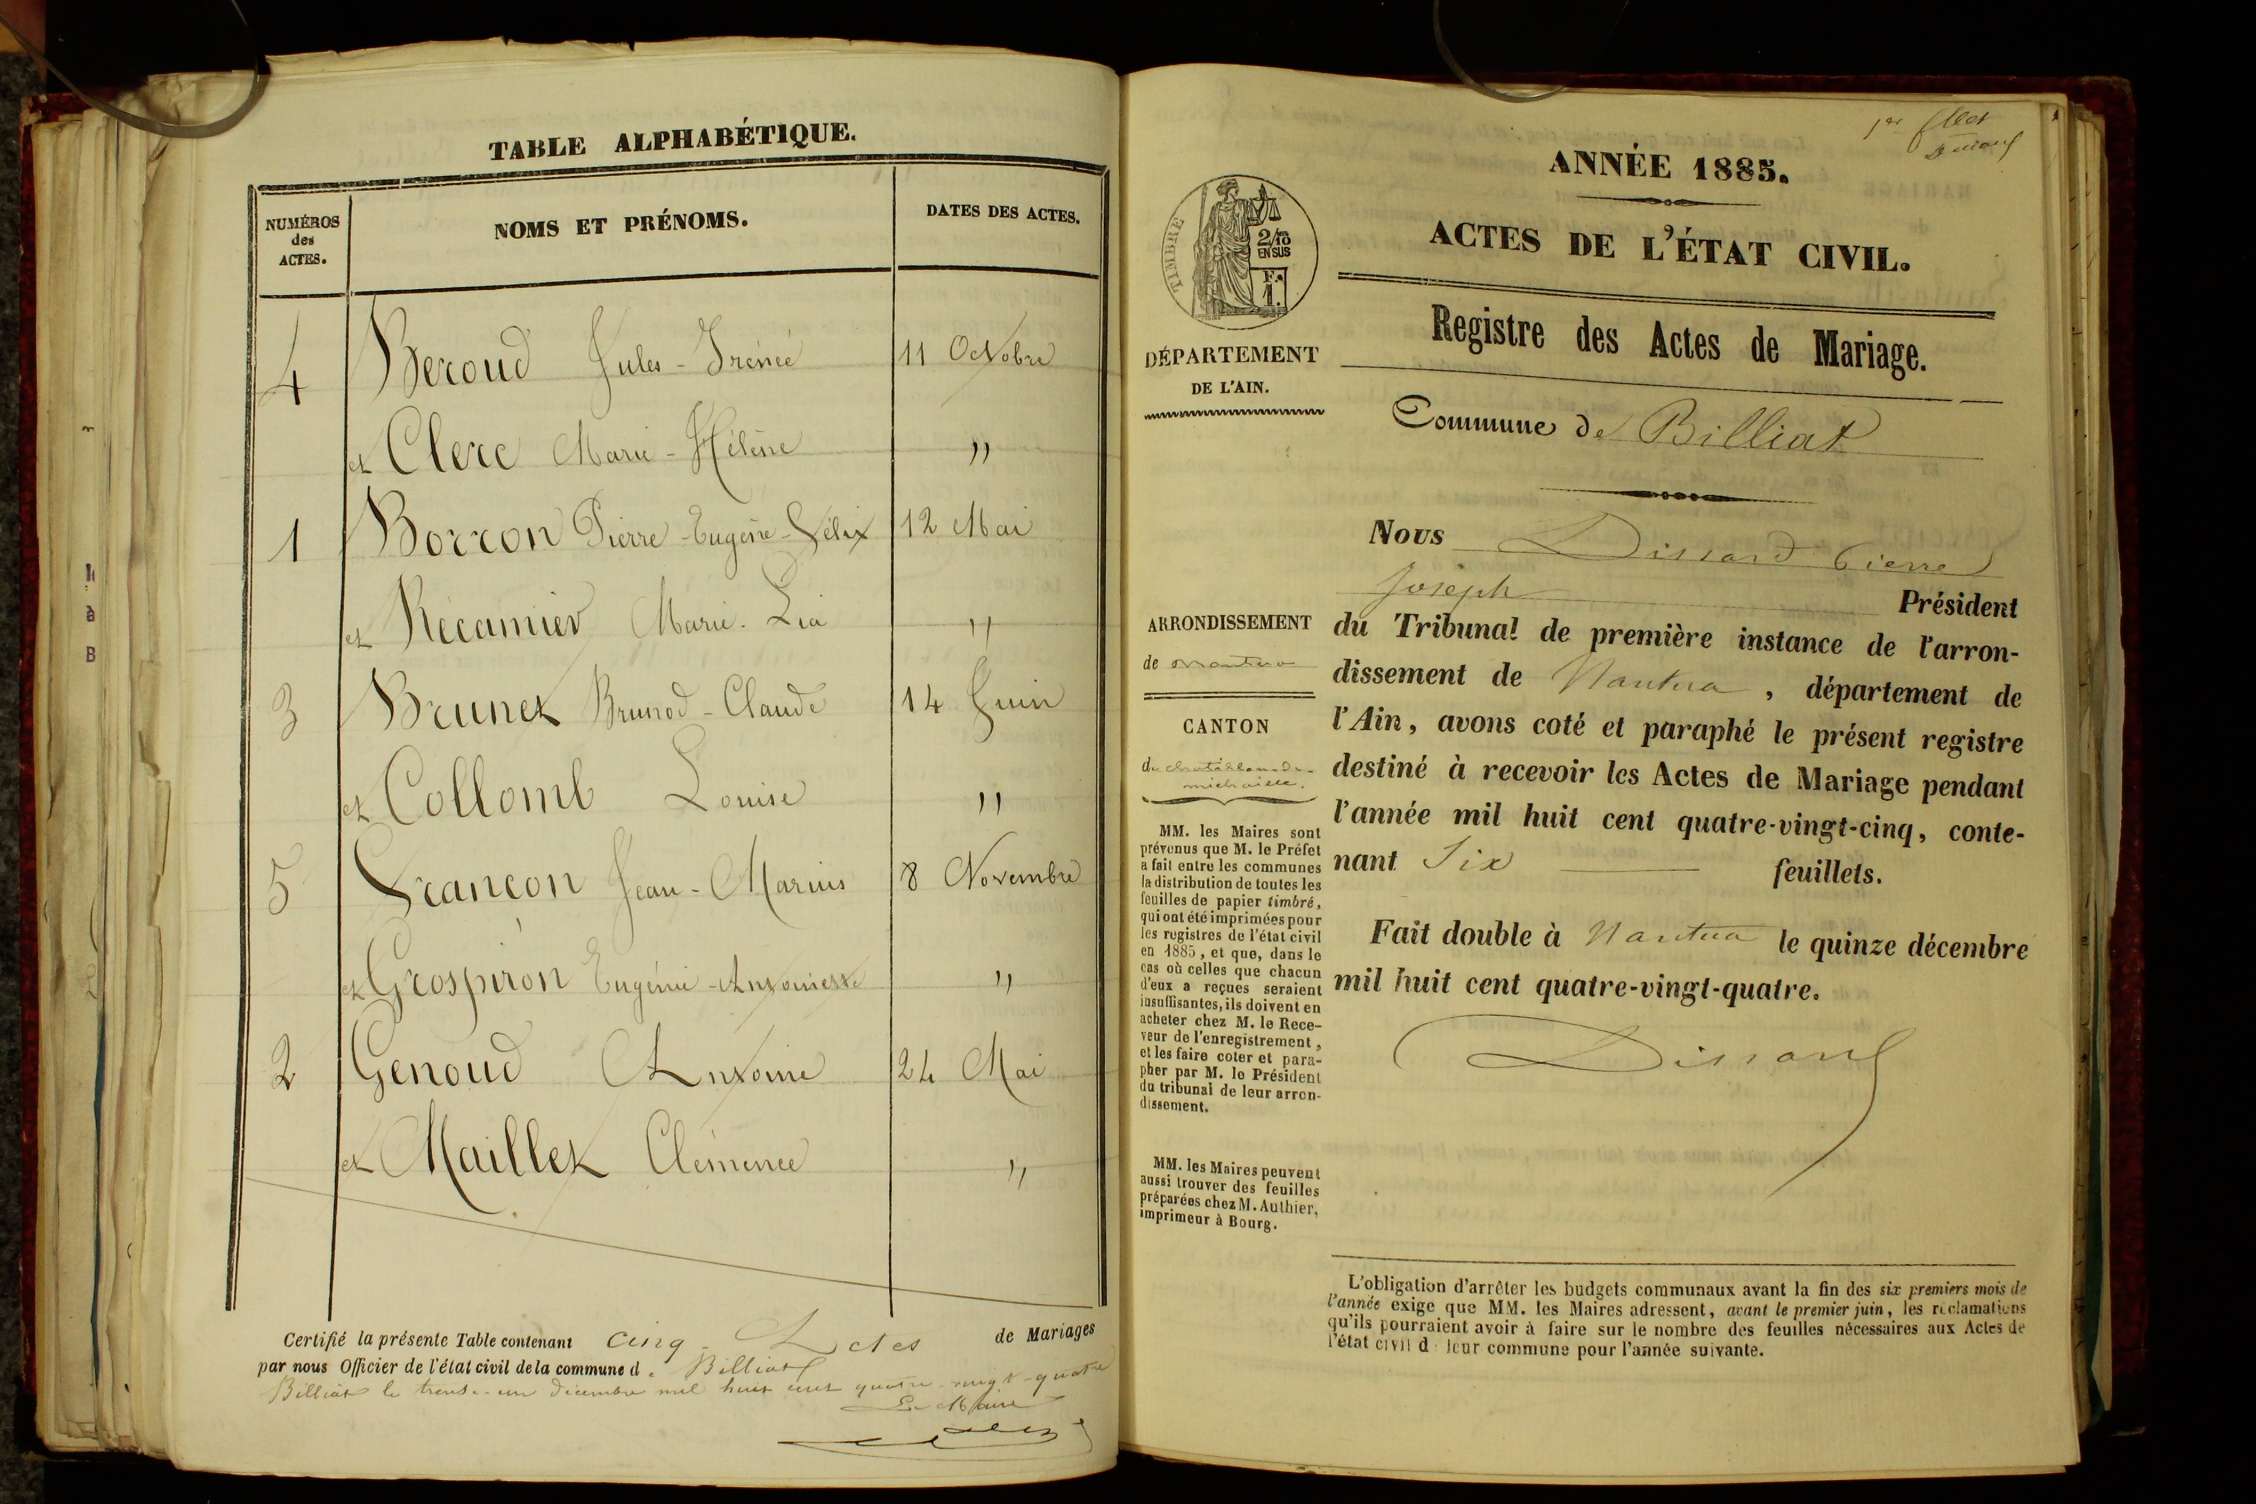 TABLE ALPHABÉTIQUE.
NUMÉROS
des
ACTES.
NOMS ET PRÉNOMS.
DATES DES ACTES.
4 Beroud Jules - Irénée 11 Octobre
et Clerc Marie - Hélène "
1 Borron Pierre - Eugène - Félix 12 Mai
et Récamier Marie - Léa "
3 Brunet Brunod - Claude 14 Juin
et Collomb Louise "
5 Francon Jean - Marius 8 Novembre
et Grospiron Eugénie - Antoinette "
2 Genoud Antoine 24 Mai
et Maillet Clémence "
Certifié la présente Table contenant cinq - Actes de Mariages
par nous Officier de l'état civil de la commune de Billiat
Billiat le trente-un décembre mil huit cent quatre-vingt-quatre
Le Maire
1er
ANNÉE 1885.
ACTES DE L'ÉTAT CIVIL.
TIMBRE
2/10
EN SUS
F.
1.
Registre des Actes de Mariage.
DÉPARTEMENT
DE L'AIN.
Commune de Billiat
ARRONDISSEMENT
de Nantua
CANTON
de Chatillon-de-
michaille.
MM. les Maires sont
prévenus que M. le Préfet
a fait entre les communes
la distribution de toutes les
feuilles de papier timbré,
qui ont été imprimées pour
les registres de l'état civil
en 1885, et que, dans le
cas où celles que chacun
d'eux a reçues seraient
insuffisantes, ils doivent en
acheter chez M. le Rece-
veur de l'enregistrement,
et les faire coter et para-
pher par M. le Président
du tribunal de leur arron-
dissement.
MM. les Maires peuvent
aussi trouver des feuilles
préparées chez M. Authier,
imprimeur à Bourg.
Nous Dissard Pierre
Joseph Président
du Tribunal de première instance de l'arron-
dissement de Nantua, département de
l'Ain, avons coté et paraphé le présent registre
destiné à recevoir les Actes de Mariage pendant
l'année mil huit cent quatre-vingt-cinq, conte-
nant Six feuillets.
Fait double à Nantua le quinze décembre
mil huit cent quatre-vingt-quatre.
Dissard
L'obligation d'arrêter les budgets communaux avant la fin des six premiers mois de
l'année exige que MM. les Maires adressent, avant le premier juin, les réclamations
qu'ils pourraient avoir à faire sur le nombre des feuilles nécessaires aux Actes de
l'état civil d leur commune pour l'année suivante.